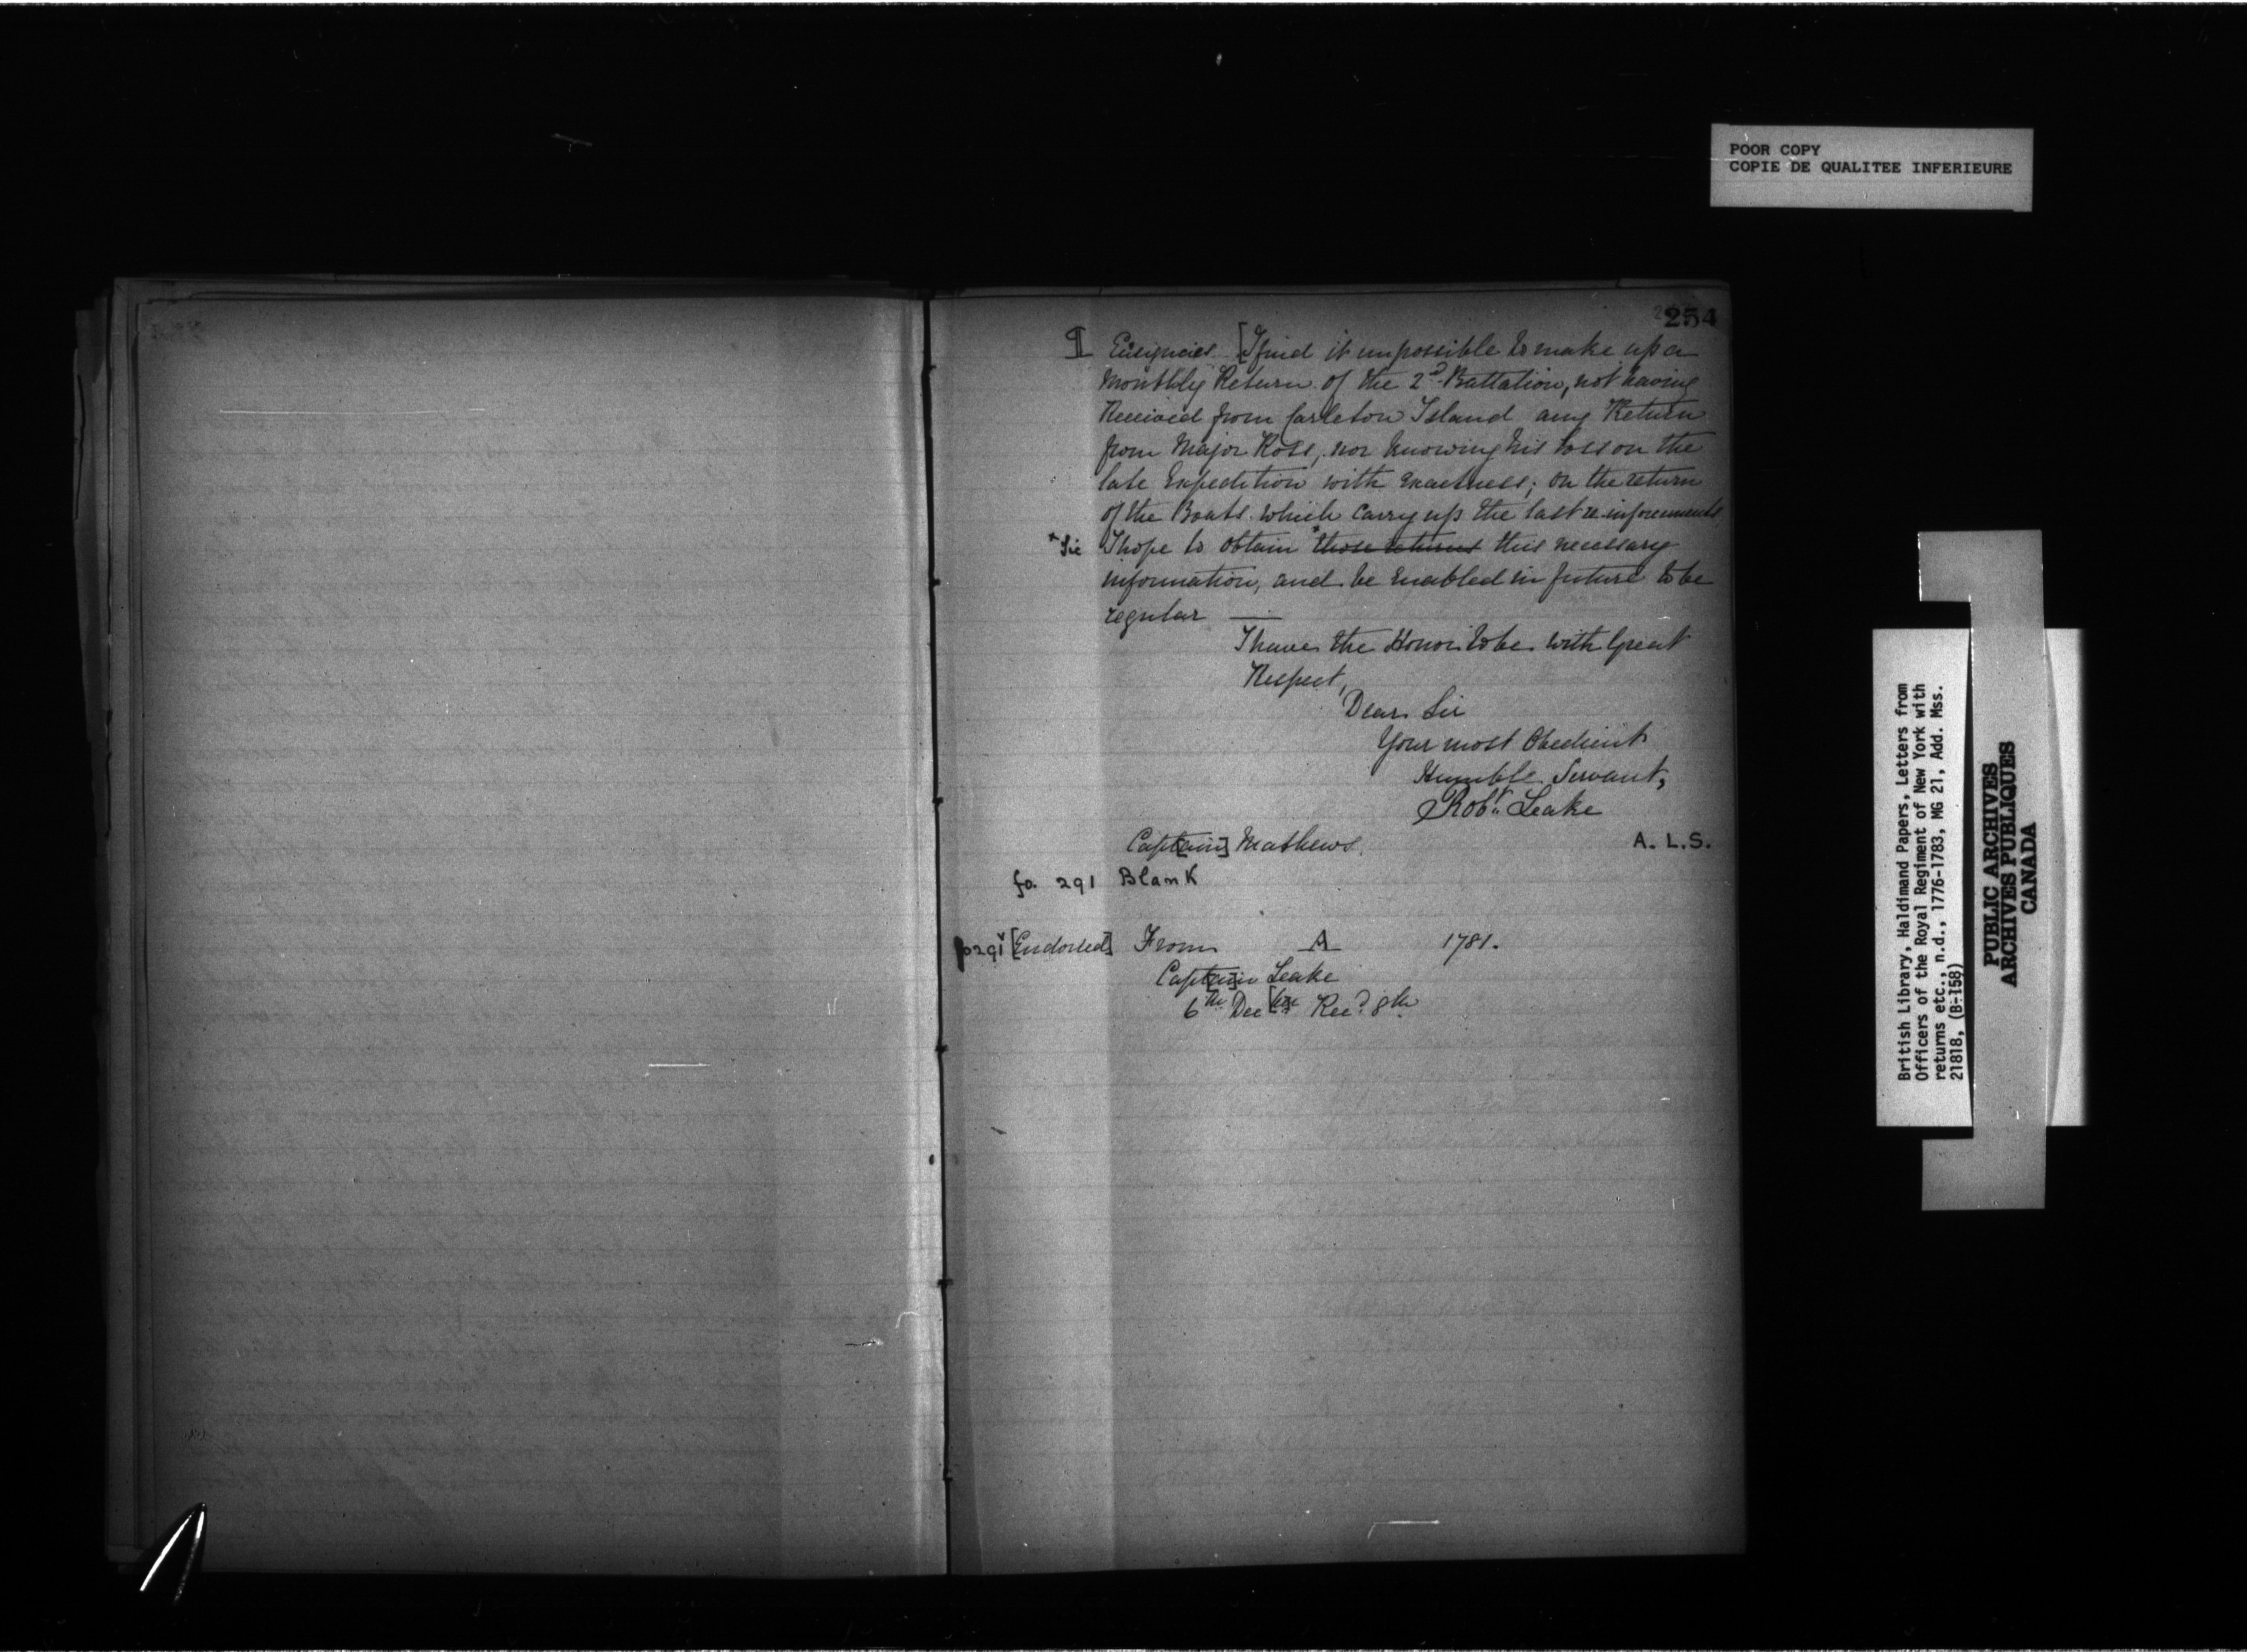 POOR COPY
COPIE DE QUALITEE INFERIEURE
254
¶ Ensigncies. [I find it impossible to make up a
Monthly Return of the 2d Battalion, not having
Received from Carleton Island any Return
from Major Ross, nor knowing his loss on the
late Expedition with exactness; on the return
of the Boats which carry up the last re-inforcements
*Sic I hope to obtain *those returns this necessary
information, and be enabled in future to be
regular —
I have the Honor to be with Great
Respect,
Dear Sir
Your most Obedient
Humble Servant,
Robt Leake
Capt[ain] Mathews.
A. L. S.
fo. 291 Blank
fo 291v [Endorsed] From A 1781.
Capt[ai]n Leake
6th Dec[br] Recd 8th
British Library, Haldimand Papers, Letters from
Officers of the Royal Regiment of New York with
returns etc., n.d., 1776-1783, MG 21, Add. Mss.
21818, (B-158)
PUBLIC ARCHIVES
ARCHIVES PUBLIQUES
CANADA